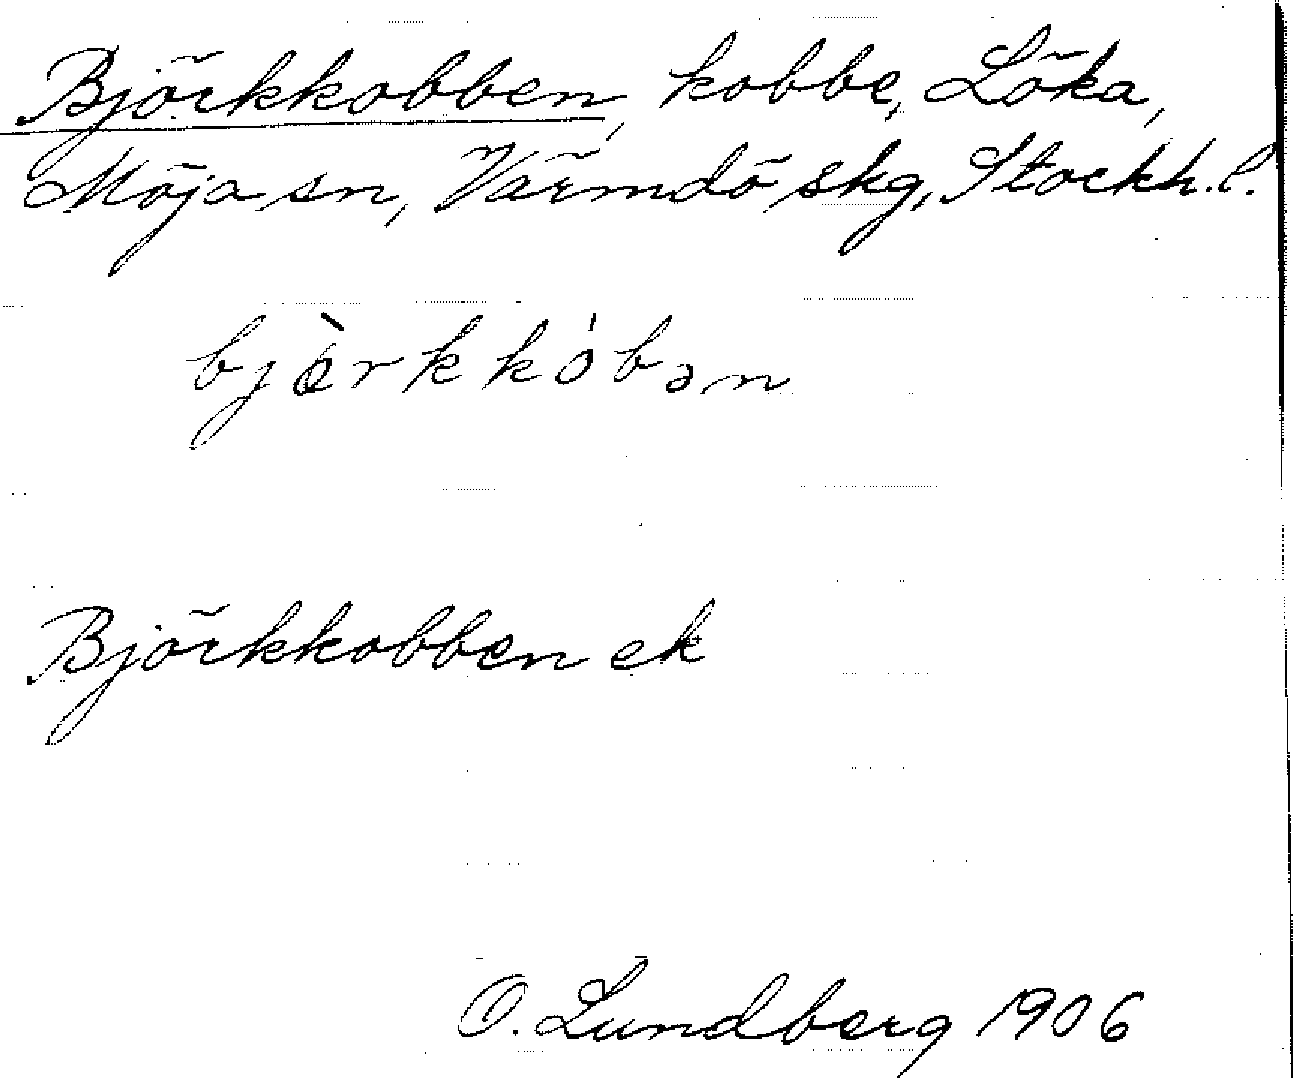 Björkkobben, kobbe, Löka,
Möja sn, Värmdö skg, Stockh. l.
bjə̀rkkóbən
Björkkobben ek
O. Lundberg 1906